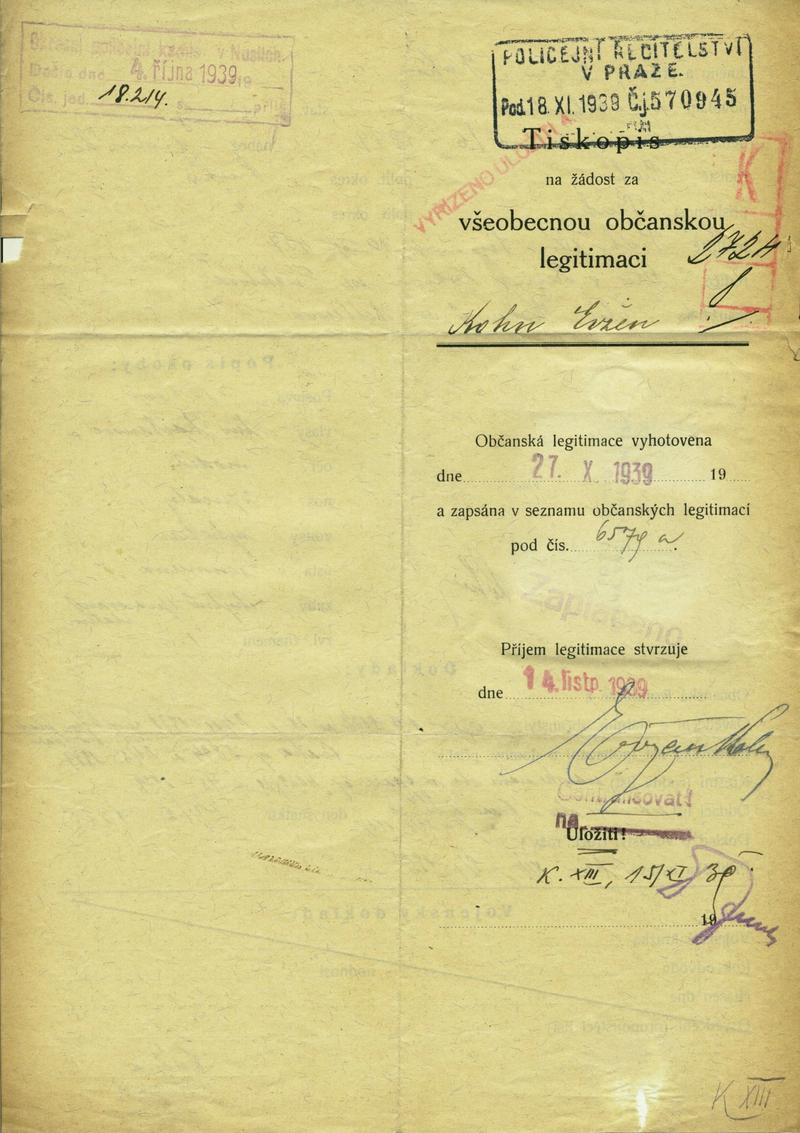 Okresní policejní komis. v Nuslích.
Došlo dne 4. října 1939
Čís. jed. 18.214. s příl.
POLICEJNÍ ŘEDITELSTVÍ
V PRAZE.
Pod. 18. XI. 1939 Čj. 570945
Tiskopis
VYŘÍZENO ULOŽIT
na žádost za
K
všeobecnou občanskou
legitimaci
2724
Kohn Evžen
Občanská legitimace vyhotovena
dne 27. X 1939 19
a zapsána v seznamu občanských legitimací
pod čís. 6579 a.
Zaplaceno
Příjem legitimace stvrzuje
dne 14. listp. 1939
Evžen Kohn
Centralisovat!
na
Uložiti!
K. XIII, 15/XI 39.
19
K XIII